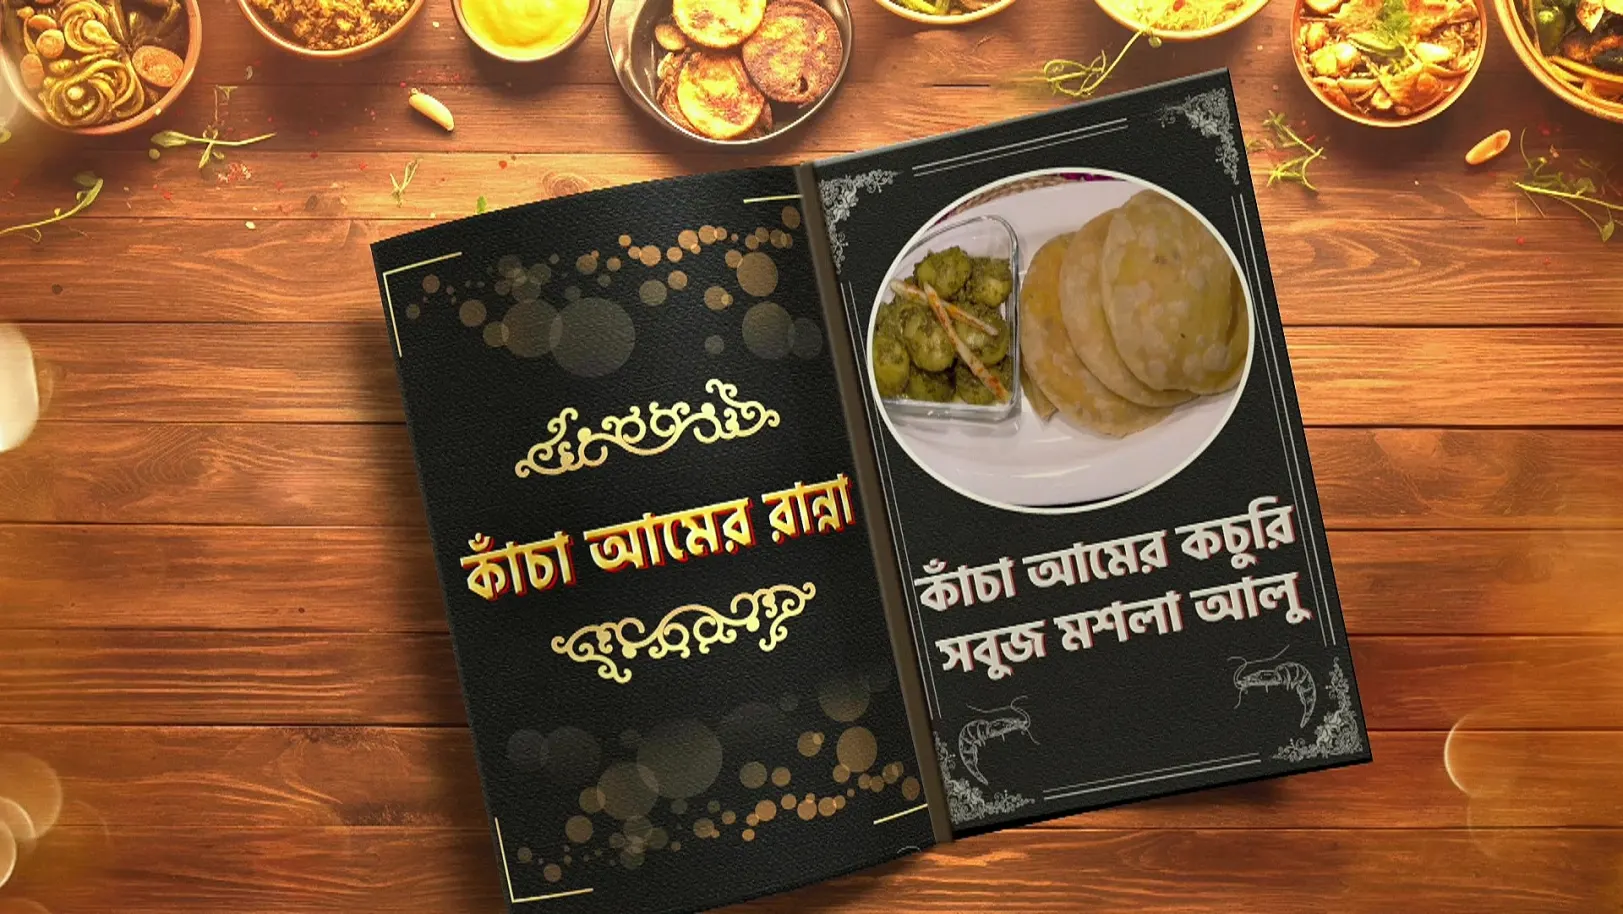 কাঁচা আমের রান্না
কাঁচা আমের কচুরি
সবুজ মশলা আলু